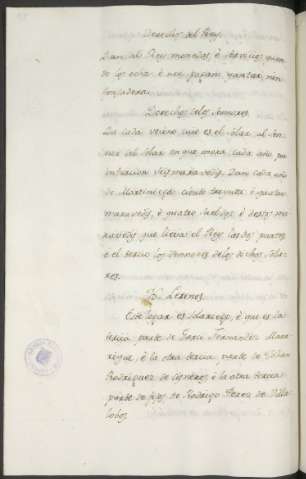 Derechos del Rey.
Dan al Rey monedas, e servicios quan-
do los echa, e non pagan yantar, nin
fonsadera.
Derechos de los Sennores.
Da cada vecino que es el solar al Sen-
nor del solar en que mora cada año por
infurcion seis maravedis. Dan cada año
de Martiniega ciento treynta e quatro
maravedis, e quatro sueldos, e destos ma-
ravedis que lieva el Rey las dos partes
e el tercio los Sennores de los dichos Sola-
res.
Este logar es solariego, e que es la
tercia parte de Garci Fernandez Manr-
rique, e la otra tercia parte de Johan
Rodriguez de Cisneros, e la otra tercia
parte de fijos de Rodrigo Perez de Villa-
lobos.